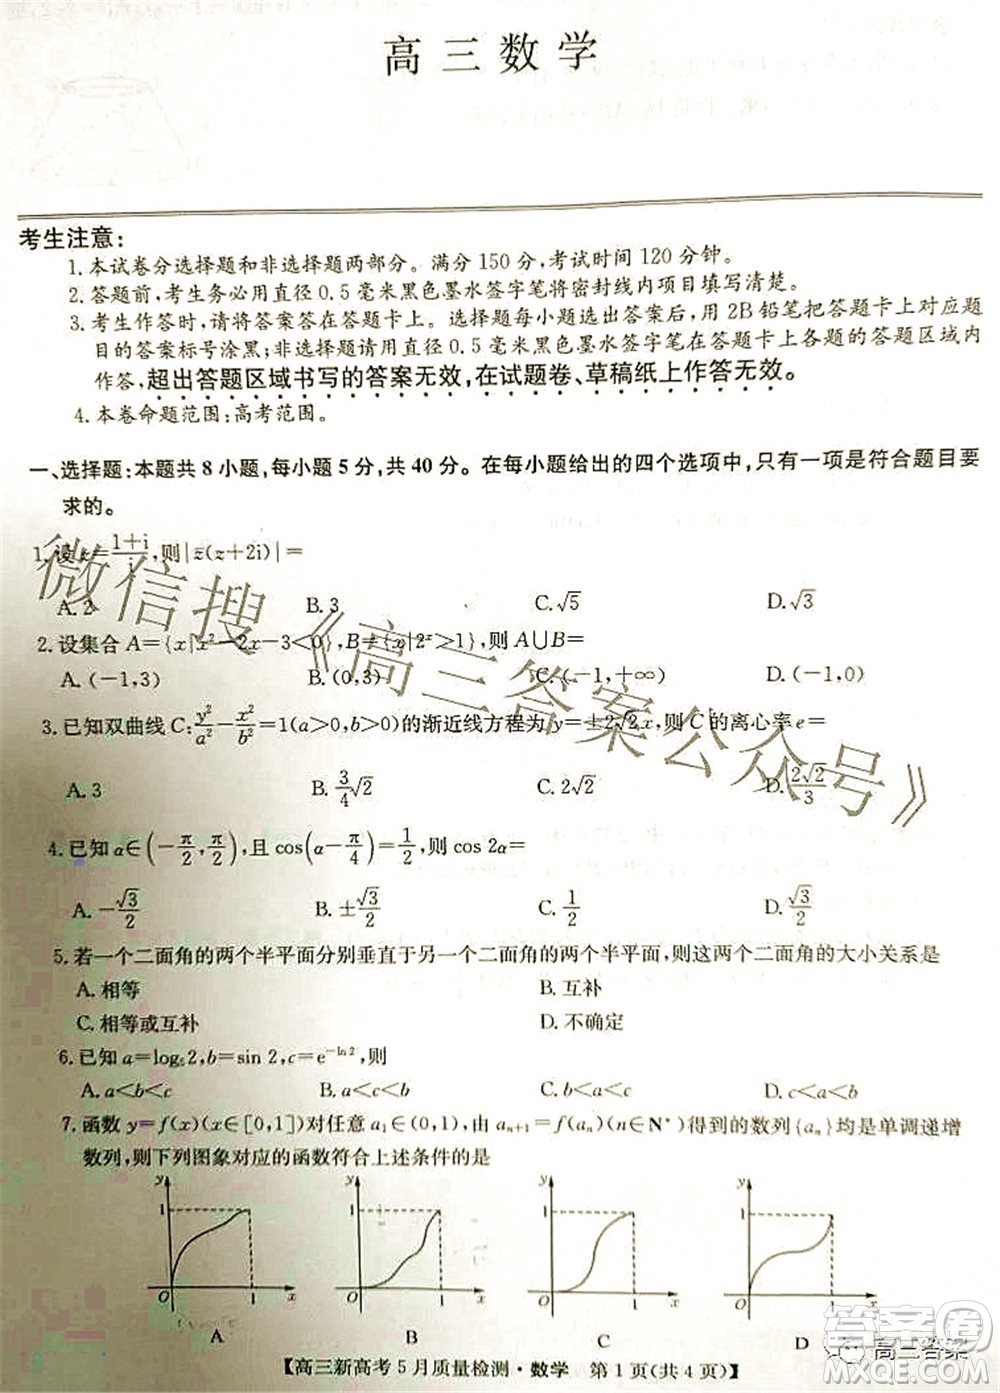 高三数学
考生注意:
1.本试卷分选择题和非选择题两部分。满分150分,考试时间120分钟。
2.答题前,考生务必用直径0.5毫米黑色墨水签字笔将密封线内项目填写清楚。
3.考生作答时,请将答案答在答题卡上。选择题每小题选出答案后,用2B铅笔把答题卡上对应题
目的答案标号涂黑;非选择题请用直径0.5毫米黑色墨水签字笔在答题卡上各题的答题区域内
作答,超出答题区域书写的答案无效,在试题卷、草稿纸上作答无效。
4.本卷命题范围:高考范围。
一、选择题:本题共8小题,每小题5分,共40分。在每小题给出的四个选项中,只有一项是符合题目要
求的。
1.设z=(1+i)/i,则|z̄(z+2i)|=
A.2 B.3 C.√5 D.√3
2.设集合A={x|x²-2x-3<0},B={x|2ˣ>1},则A∪B=
A.(-1,3) B.(0,3) C.(-1,0) D.(-1,+∞)
3.已知双曲线C:y²/a²-x²/b²=1(a>0,b>0)的渐近线方程为y=±2√2x,则C的离心率e=
A.3 B.3/4√2 C.2√2 D.2√2/3
4.已知α∈(-π/2,π/2),且cos(α-π/4)=1/2,则cos 2α=
A.-√3/2 B.±√3/2 C.1/2 D.√3/2
5.若一个二面角的两个半平面分别垂直于另一个二面角的两个半平面,则这两个二面角的大小关系是
A.相等 B.互补
C.相等或互补 D.不确定
6.已知a=log₅2,b=sin 2,c=e^(-ln2),则
A.a<b<c B.a<c<b C.b<a<c D.c<a<b
7.函数y=f(x)(x∈[0,1])对任意a₁∈(0,1),由aₙ₊₁=f(aₙ)(n∈N*)得到的数列{aₙ}均是单调递增
数列,则下列图象对应的函数符合上述条件的是
y 1 1 x
y 1 1 x
y 1 1 x
y 1 1 x
A B C D
【高三新高考5月质量检测·数学 第1页(共4页)】
微信搜《高三答案公众号》
答案圈
MXQE.COM
高三答案